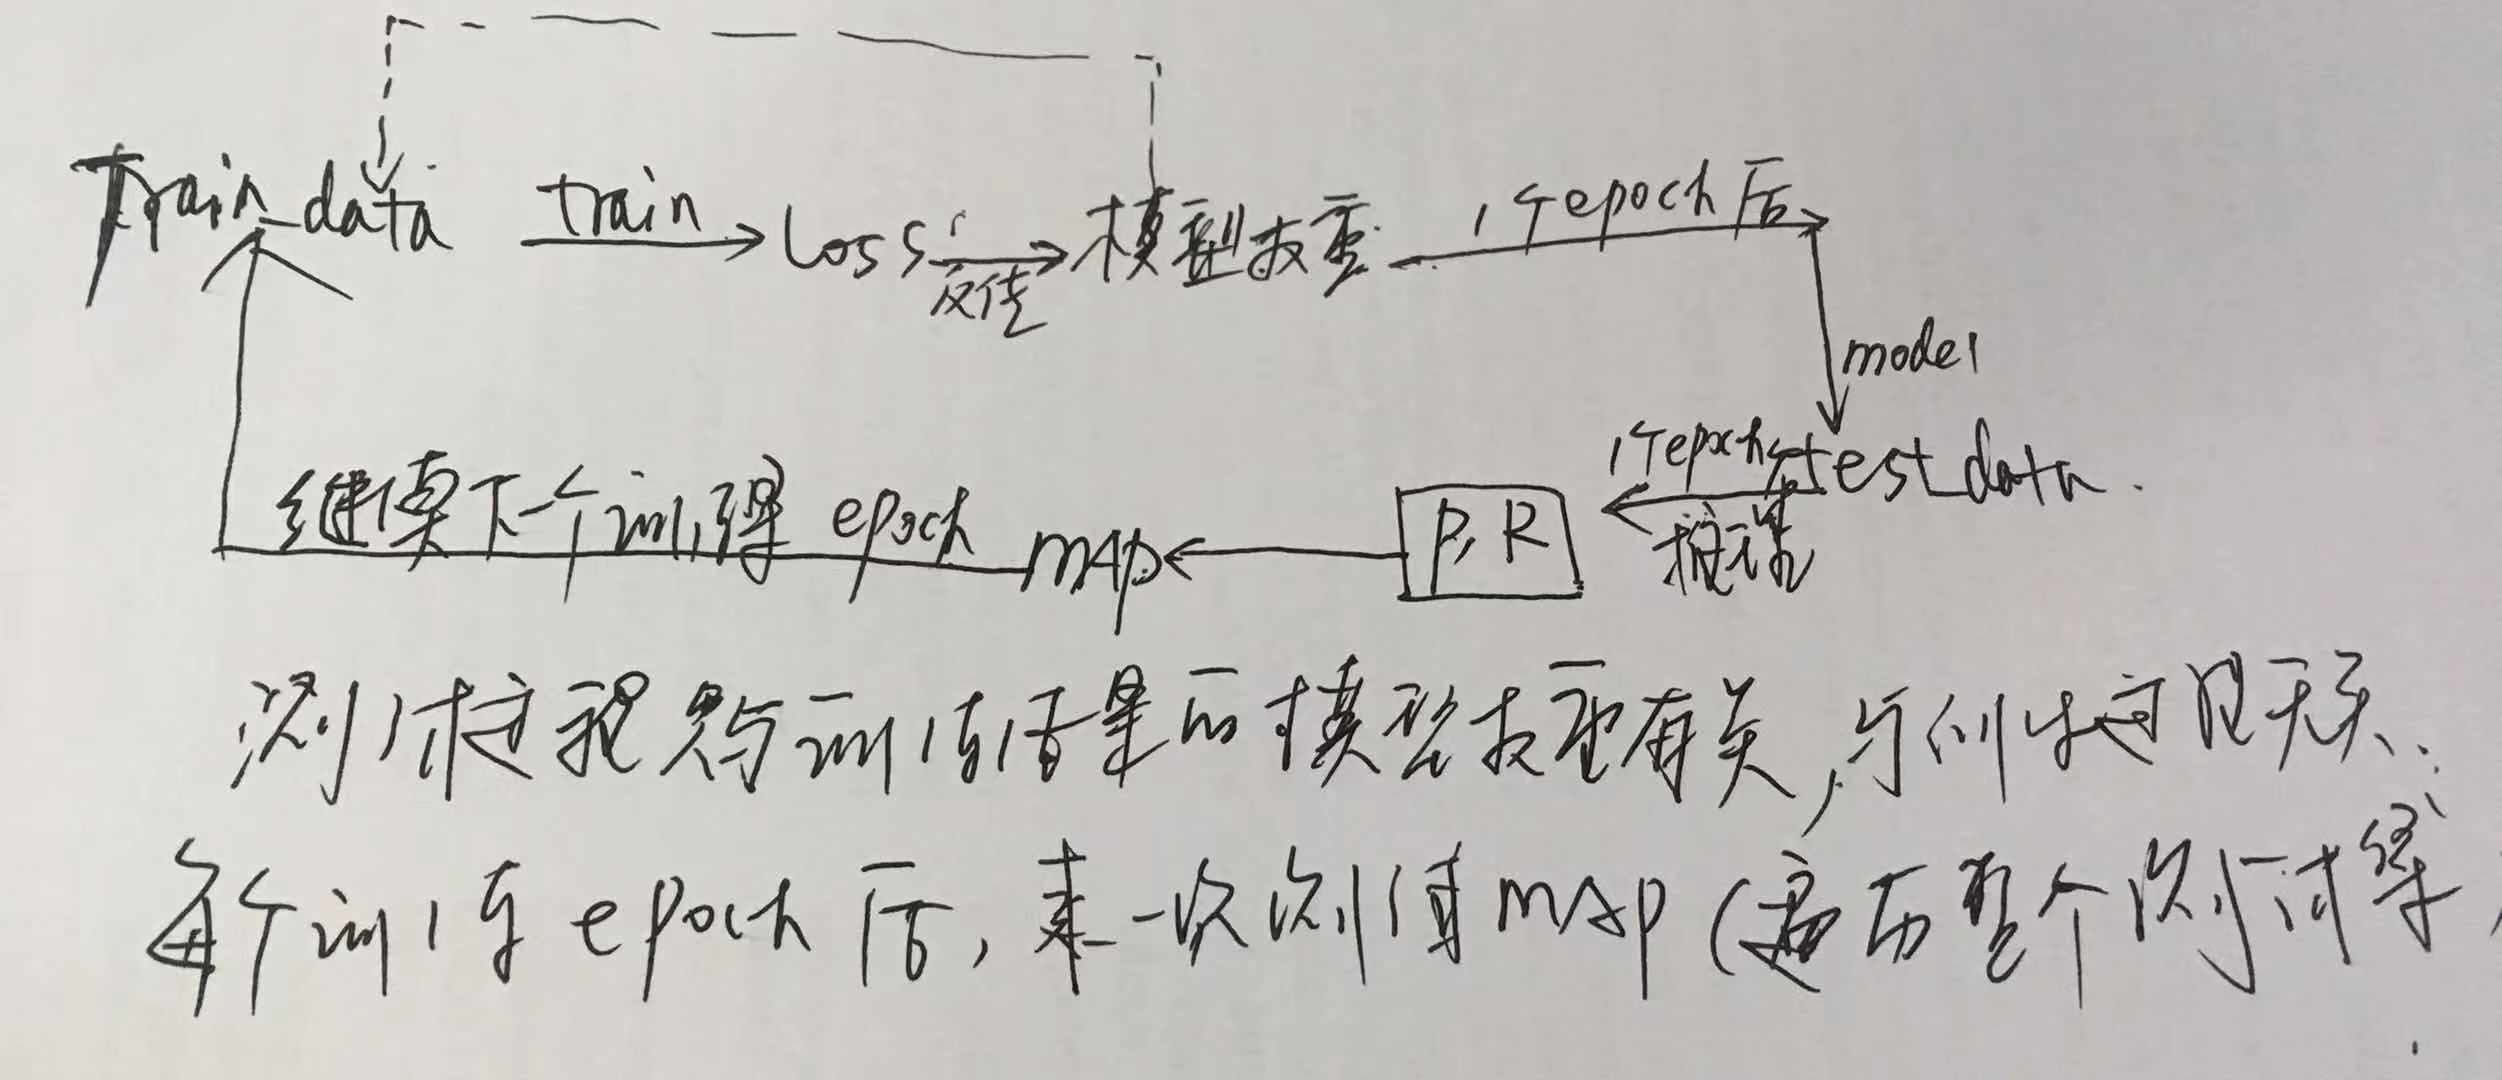 Train_data train loss 反传 模型权重 1个epoch后
model
1个epoch test_data
推理
P, R
mAP
继续下个训练 epoch
测试 与训练结果的模型权重有关,与训练过程无关.
每个训练epoch后,来一次测试mAP(遍历整个测试集